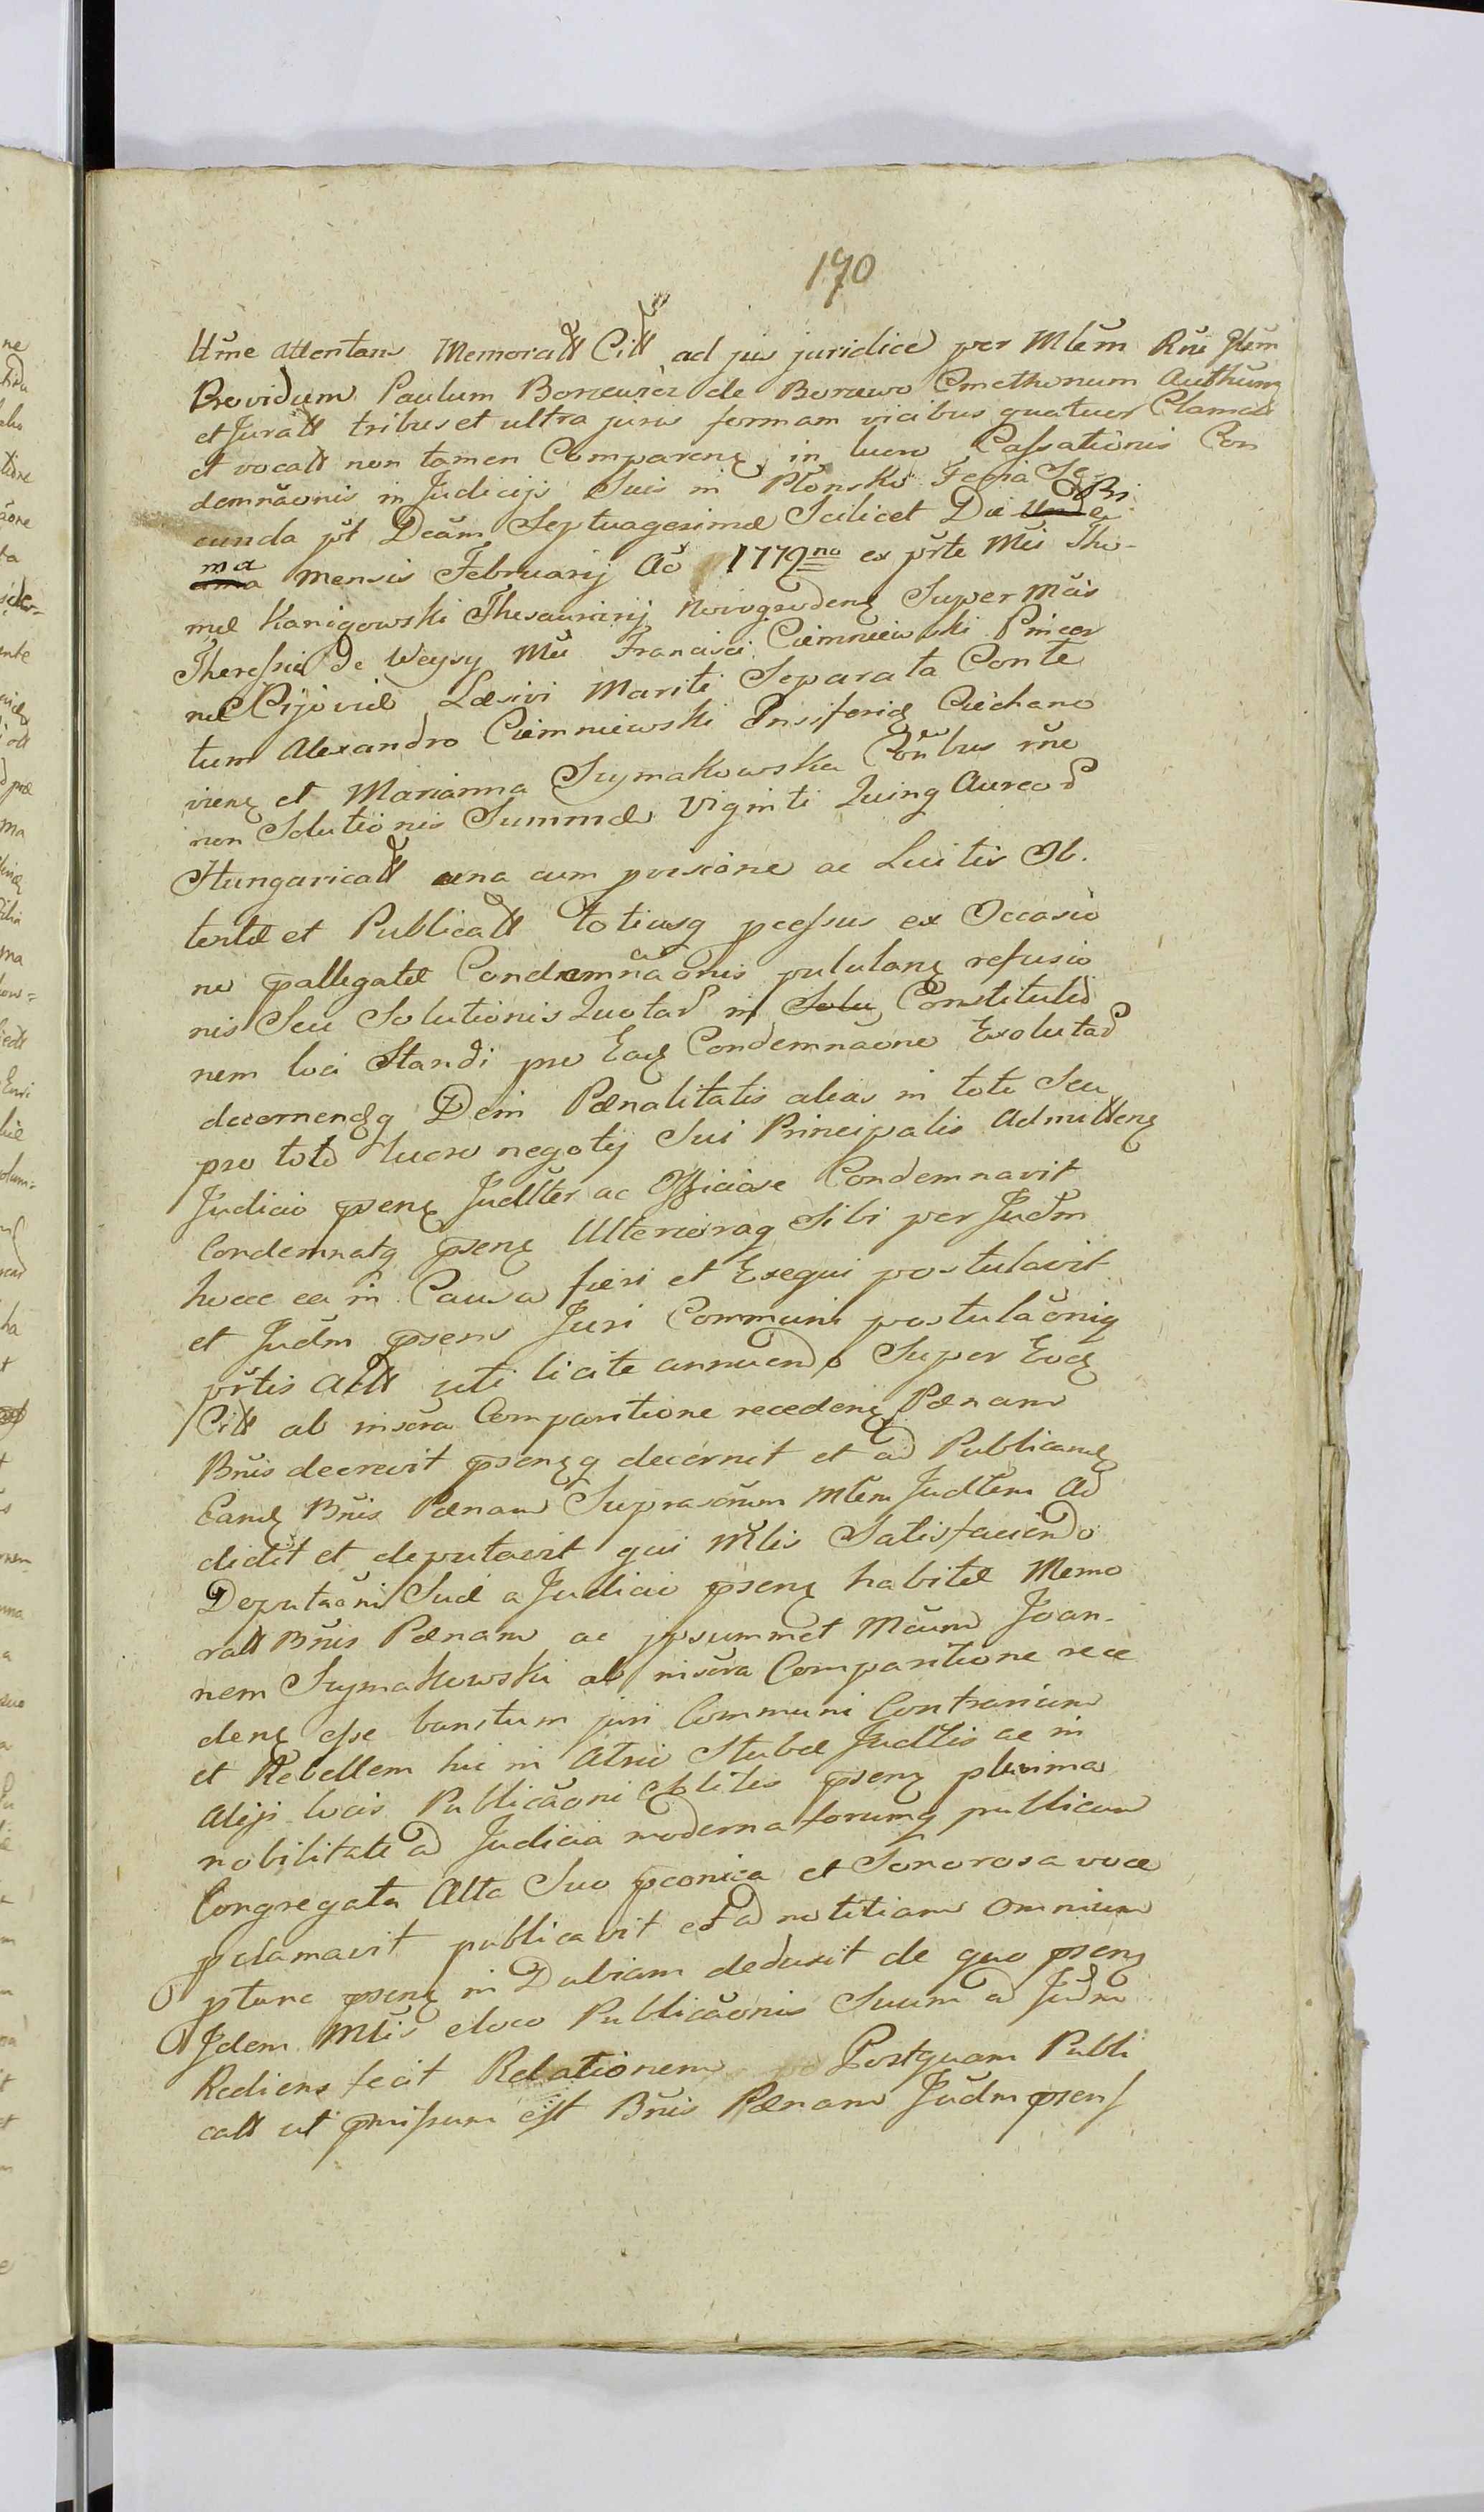 170
Ultime attentam Memoratt Citt ad jus juridice per Mlem Rni Glem
Providum Paulum Borcuich de Borcuwo Cmethonum Authum
et Juratt tribus et ultra juris formam vicibus quatuor Clamatt
et vocatt non tamen Comparenę in lucro Cassationis Con
demnãonis in Judicijs Suis in Płonsko Feria Se
cunda pt Dcãm Septuagesimæ Scilicet Die Pri
ma mensis Februarij Aõ 1779no ex prte Mci Tho-
mæ Karigowski Thesaurarij Novogrodenę Super Mcis
Theressia De Weysy Mci Francisci Ciemniewski Pincer
næ Kijoviæ Læsivi Mariti Separata Conte
tum Alexandro Ciemniewski Ensiferię Ciechano
vienę et Marianna Szymakowska Conbus rñe
non Solutionis Summæ Viginti Quinq Aureod
Hungaricatt una cum provisione ac Luitis Ob.
tentæ et Publicatt totiusq pcessus ex Occasio
ne pallegatæ Condemnãonis pululanę refusio
nis Seu Solutionis Quotad in Solu Constitutio
nem loci Standi pro Eadę Condemnãone Exolutad
decernendęq Dein Pænalitatis alias in toto Seu
pro toto lucro negotij Sui Principalis Admittenę
Judicio psenę Judlter ac Officiose Condemnavit
Condemnatq psenę Ulterioraq Sibi per Judm
hocce ea in Causa fieri et Exequi postulavit
et Judm psens Juri Communi postulãoniq
prtis Actt uti licite annuendo Super Eodę
Citt ab inscra Comparitione recedenę Pænam
Bnis decrevit psenęq decernit et ad Publicandę
Eandę Bnis Pænam Suprascrum Mlem Judlem Ad
didit et deputavit qui Mlis Satisfaciendo
Deputãoni Suæ a Judicio psenę habitæ Memo
ratt Bnis Pænam ac ipsummet Mcum Joan-
nem Szymakowski ab inscra Comparitione rece
denę esse banitum juri Communi Contrarium
et Rebellem hic in Atrio Stubæ Judlis ac in
Alijs locis Publicãoni solitis psenę plurima
nobilitate ad Judicia moderna forumq publicum
Congregata Alta Suo pconica et Sonorosa voce
pclamavit publicavit et ad notitiam omnium
ptunc psenę in Dubiam deduxit de quo psenę
Idem Mlis eloco Publicãonis Suum ad Judm
Rediens fecit Relationem Postquam Publi
catt ut pmissum est Bnis Pænam Judm psens